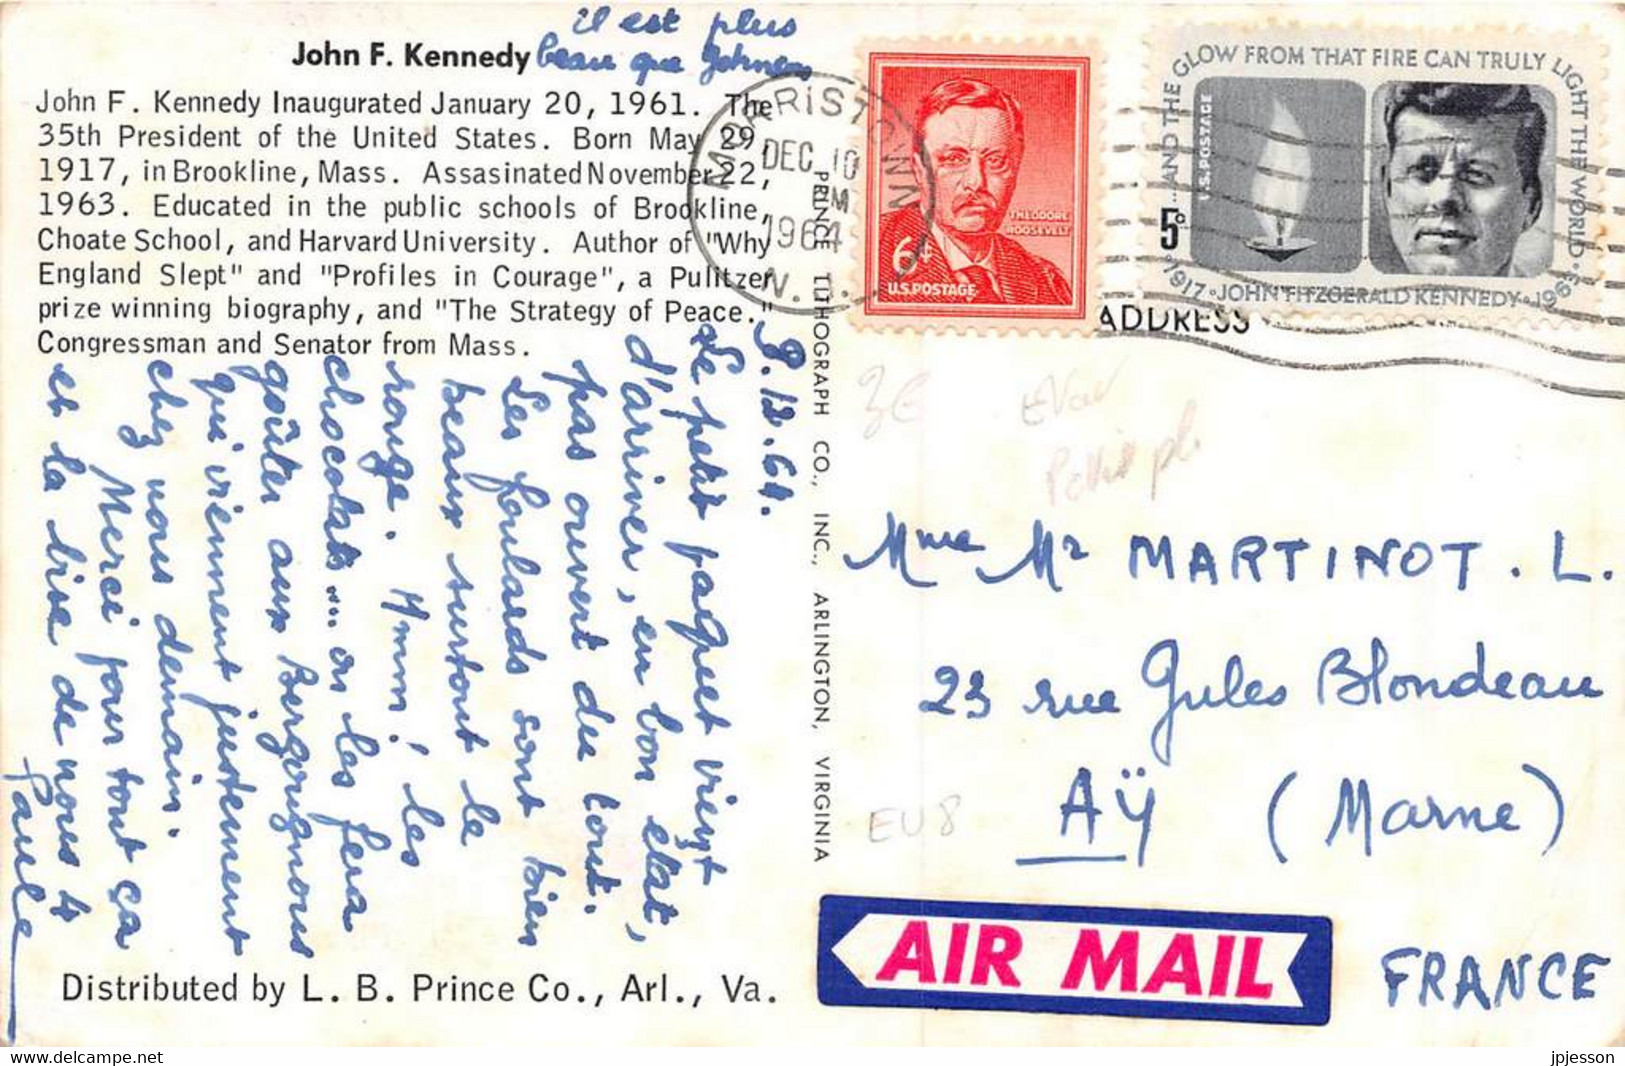 il est plus
John F. Kennedy beau que Johnson
John F. Kennedy Inaugurated January 20, 1961. The
35th President of the United States. Born May 29,
1917, in Brookline, Mass. Assasinated November 22,
1963. Educated in the public schools of Brookline,
Choate School, and Harvard University. Author of "Why
England Slept" and "Profiles in Courage", a Pulitzer
prize winning biography, and "The Strategy of Peace."
Congressman and Senator from Mass.
8.12.64.
Le petit paquet vient
d'arriver, en bon état,
pas ouvert du tout.
Les foulards sont bien
beaux surtout le
rouge. Hmm! les
chocolats... on les fera
goûter aux Bergougnous
qui viennent justement
chez nous demain.
Merci pour tout ça
et la bise de nous 4
Paule
Distributed by L. B. Prince Co., Arl., Va.
PRINCE LITHOGRAPH CO., INC., ARLINGTON, VIRGINIA
MORRISTOWN
DEC 10
PM
1964
N.J.
THEODORE
ROOSEVELT
6¢
U.S.POSTAGE
...AND THE GLOW FROM THAT FIRE CAN TRULY LIGHT THE WORLD.
U.S.POSTAGE
5¢
1917·JOHN FITZGERALD KENNEDY·1963
ADDRESS
3€
Mme Mr MARTINOT. L.
23 rue Jules Blondeau
AŸ (Marne)
EU 8
AIR MAIL
FRANCE
jpjesson